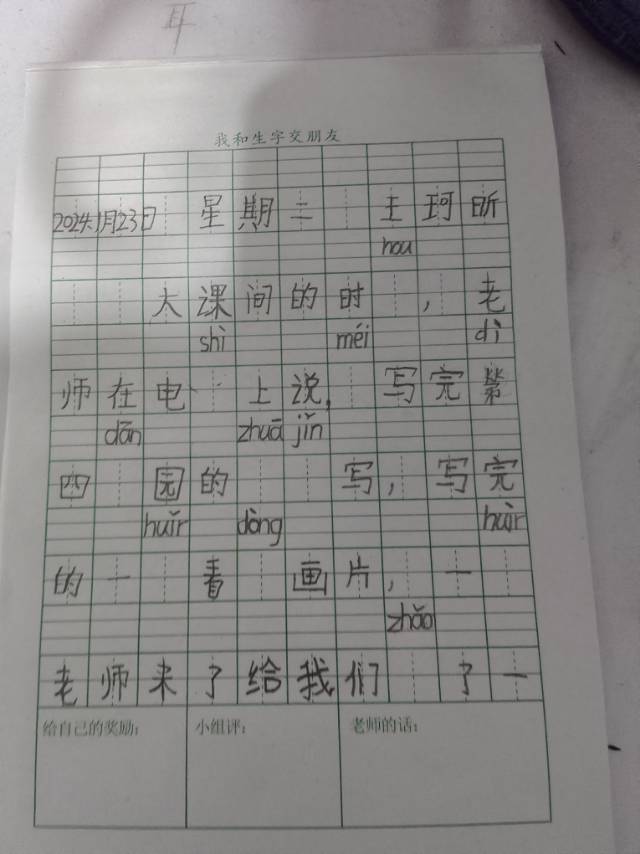 耳
我和生字交朋友
2024.1月23日 星期二 王珂昕
hou
大课间的时 ，老
shì méi dì
师在电 上说，写完第
dān zhuā jǐn
四 园的 写，写完
huǐr dòng huìr
的一 看 画片，一
zhǎo
老师来了给我们 了一
给自己的奖励： 小组评： 老师的话：